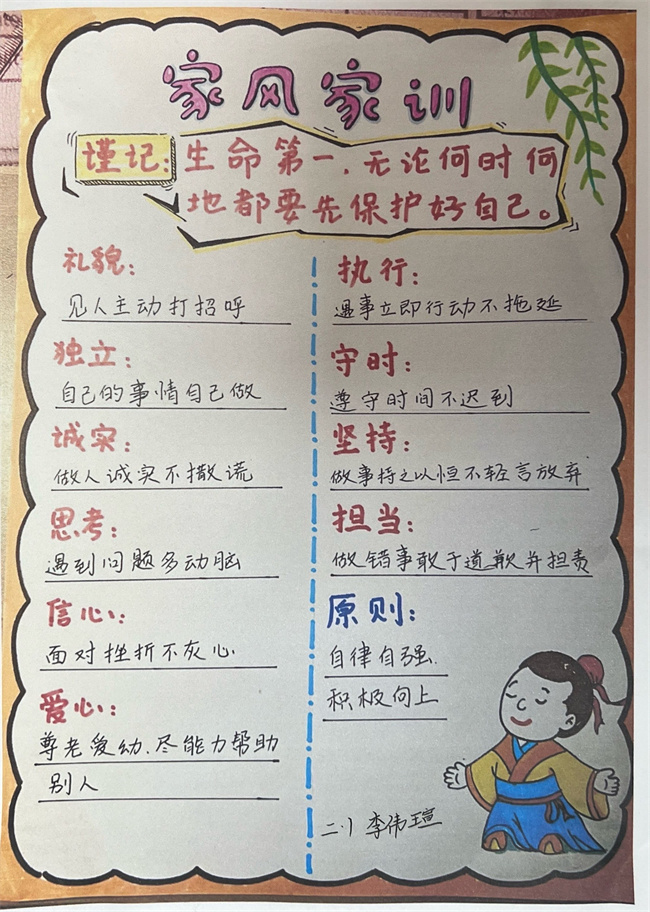 家风家训
谨记:生命第一.无论何时何
地都要先保护好自己。
礼貌:
见人主动打招呼
独立:
自己的事情自己做
诚实:
做人诚实不撒谎
思考:
遇到问题多动脑
信心:
面对挫折不灰心
爱心:
尊老爱幼.尽能力帮助
别人
执行:
遇事立即行动不拖延
守时:
遵守时间不迟到
坚持:
做事持之以恒不轻言放弃
担当:
做错事敢于道歉并担责
原则:
自律自强.
积极向上
二.1 李伟瑄